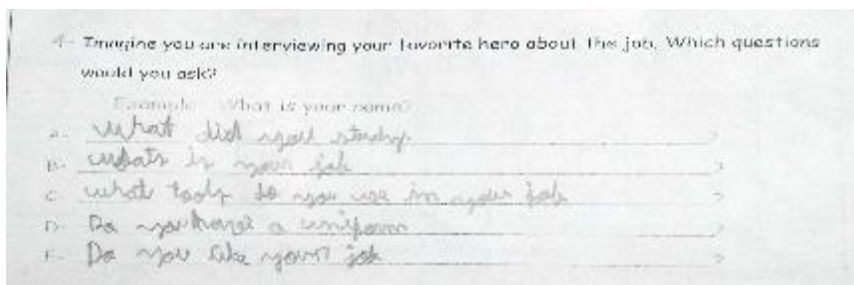 4- Imagine you are interviewing your favorite hero about the job. Which questions
would you ask?
Example: What is your name?
a. What did you study ?
B. whats is your job ?
C. what tools do you use in your job ?
D. Do you have a uniform ?
E. Do you like your job ?